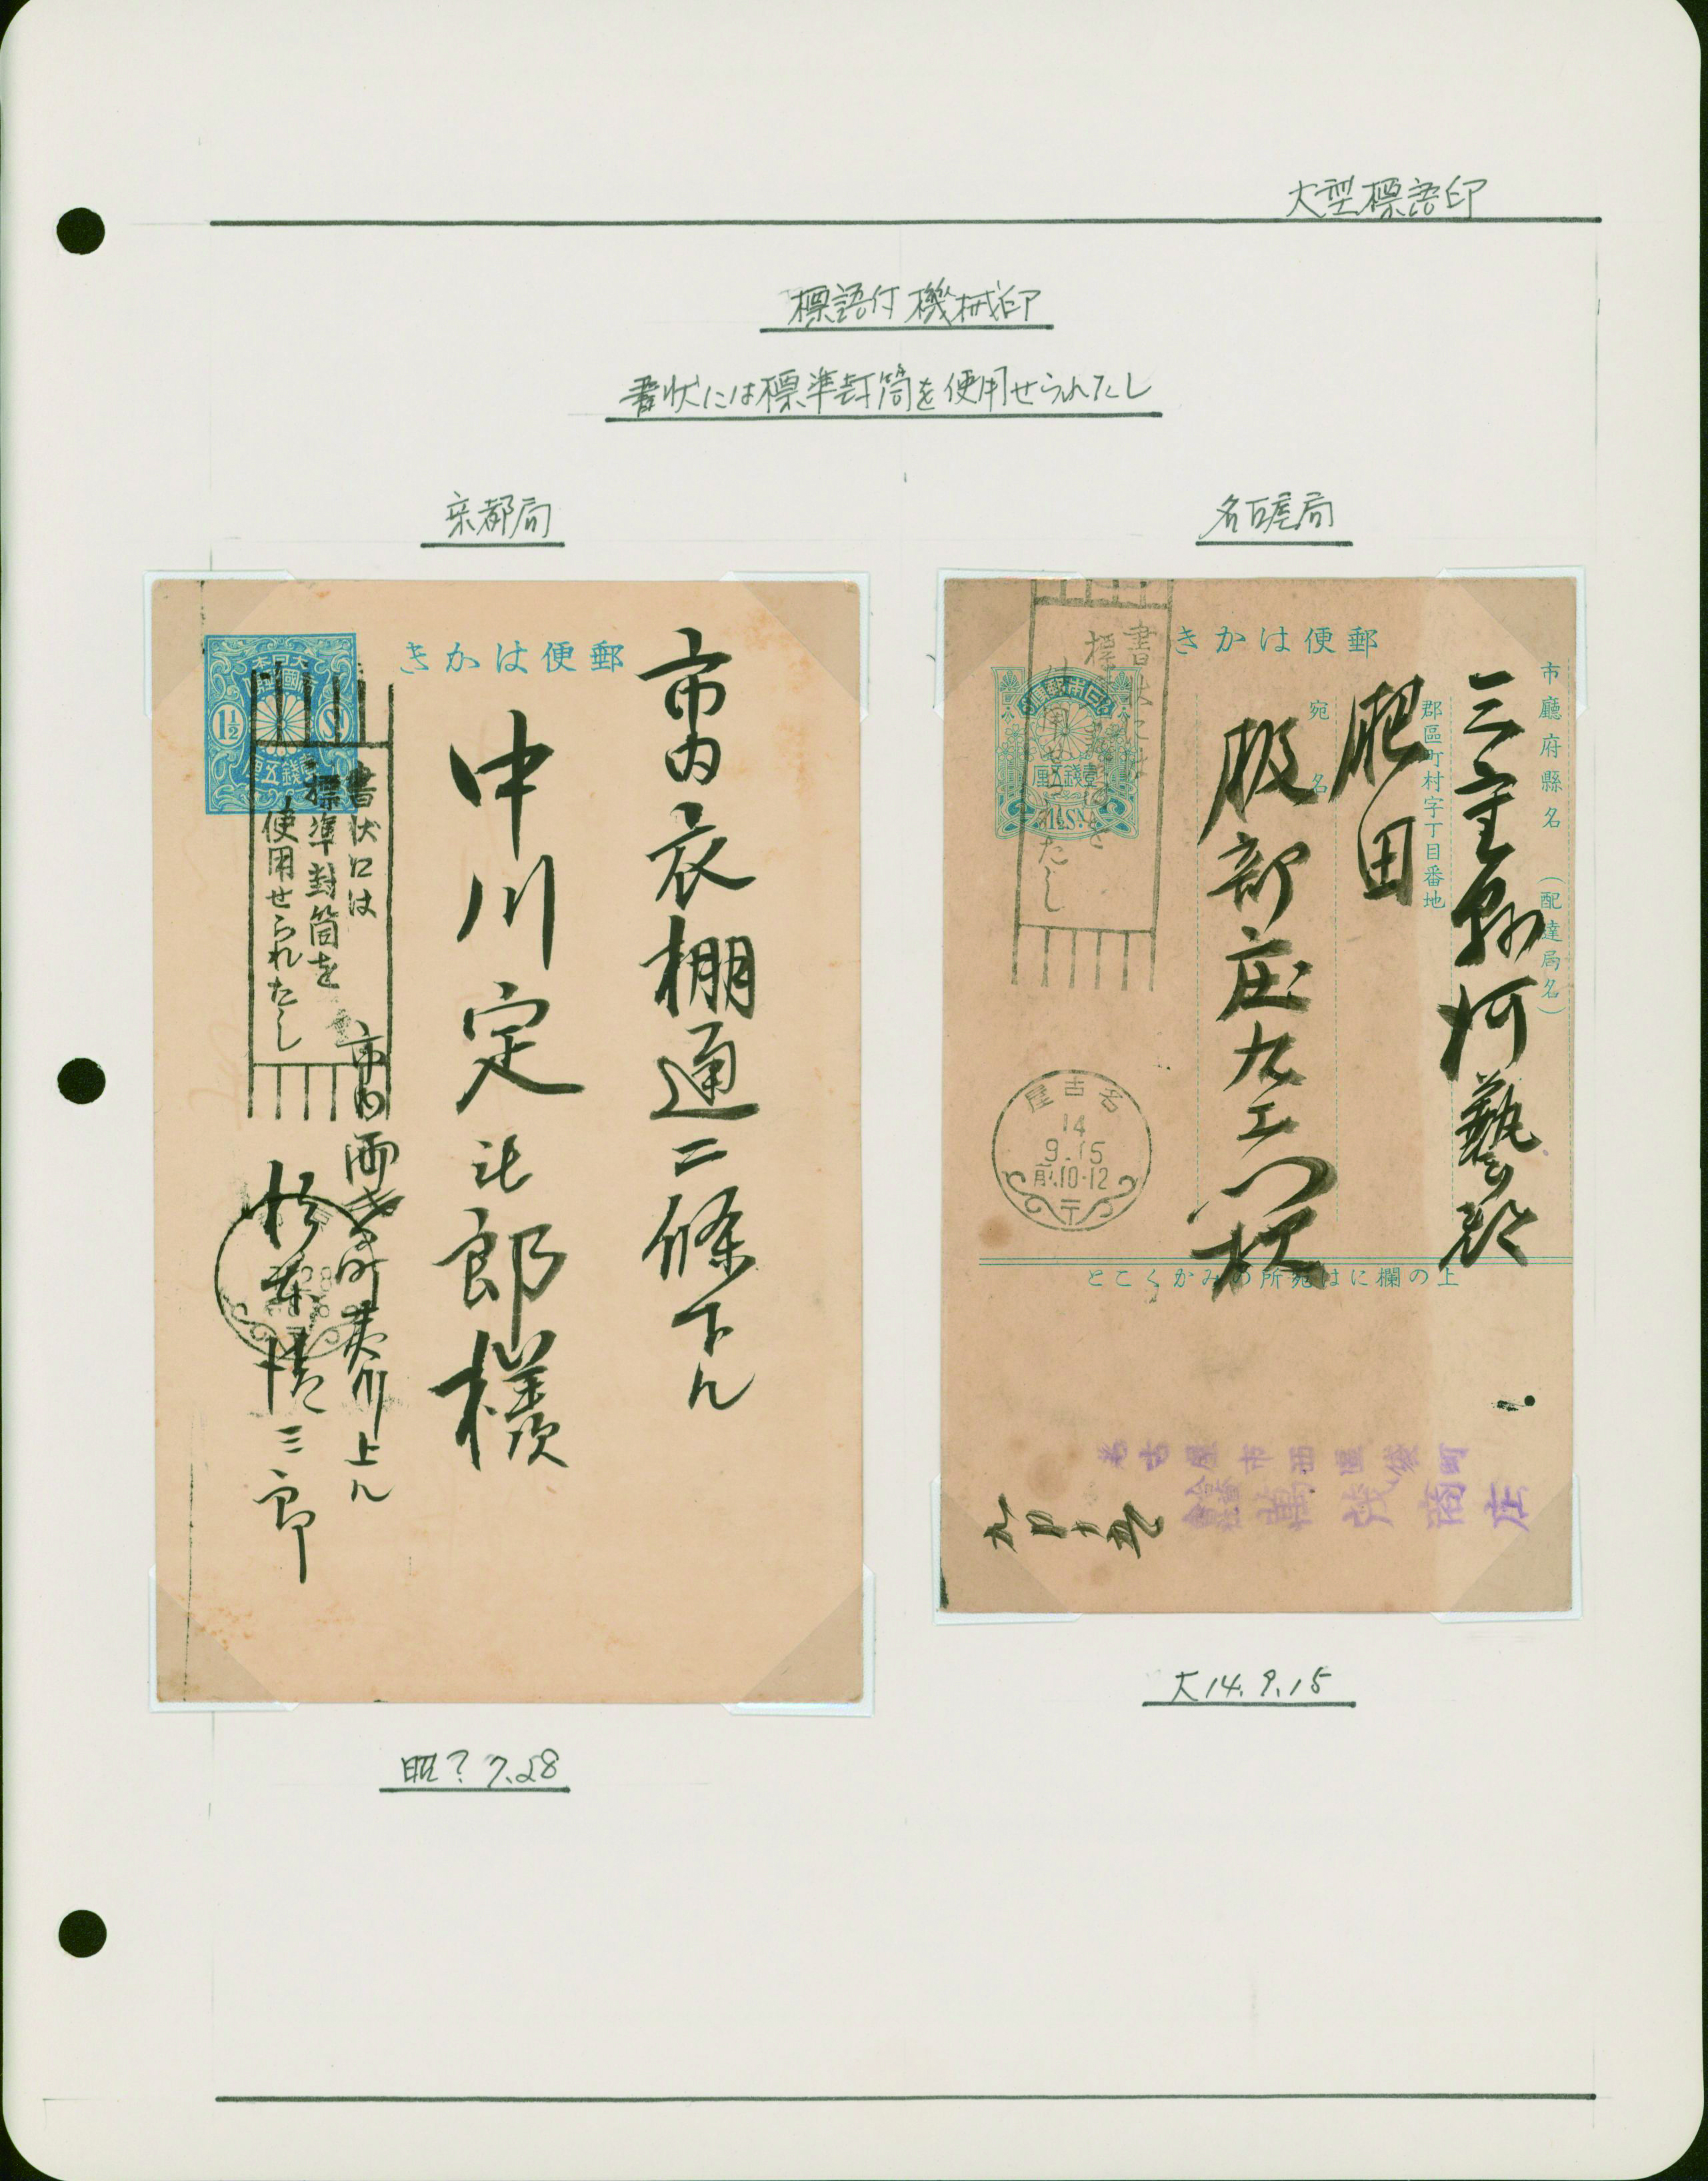 大型標語印
標語付機械印
書状には標準封筒を使用せられたし
京都局
名古屋局
きかは便郵
1½ Sn
市内衣棚通二條下ル
中川定 郎様
書状には
標準封筒を
使用せられたし
市内
上ル
三郎
28
昭? 7.28
きかは便郵
市廳府縣名(配達局名)
郡區町村字丁目番地
宛名
壹錢五厘
1½Sn.
書状には
標準封筒を
使用せられたし
三重縣河藝郡
肥田
服部庄九
屋古名
14
9.15
前10-12
とこくかみの所宛はに欄の上
名古屋市西區袋町
商店
大14.9.15